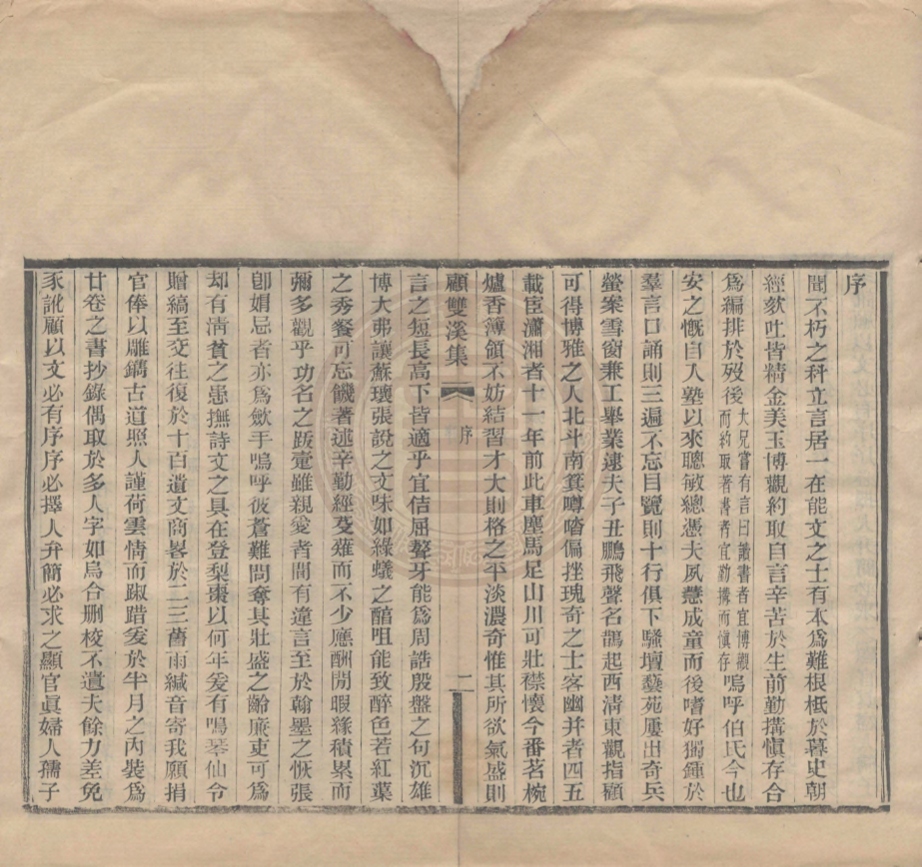 序
聞不朽之科立言居一在能文之士有本爲難根柢於暮史朝
經欬吐皆精金美玉博觀約取自言辛苦於生前勤搆愼存合
爲編排於歿後大兄嘗有言曰讀書者宜博觀而約取著書者宜勤搆而愼存嗚呼伯氏今也
安之慨自入塾以來聰敏總憑夫夙慧成童而後嗜好獨鍾於
羣言口誦則三遍不忘目覽則十行俱下騷壇藝苑屢出奇兵
螢案雪窗兼工舉業逮夫子丑鵬飛聲名鵲起西淸東觀指顧
可得博雅之人北斗南箕噂喈偏挫瑰奇之士客幽并者四五
載宦瀟湘者十一年前此車塵馬足山川可壯襟懷今番茗椀
爐香簿領不妨結習才大則格之平淡濃奇惟其所欲氣盛則
顧雙溪集
序
二
言之短長高下皆適乎宜佶屈聱牙能爲周誥殷盤之句沉雄
博大弗讓蘇瓌張說之文味如綠蟻之醅咀能致醉色若紅葉
之秀餐可忘饑著述辛勤經芟薙而不少應酬閒暇緣積累而
彌多觀乎功名之跋疐雖親愛者間有違言至於翰墨之恢張
卽娼忌者亦爲斂手嗚呼彼蒼難問奪其壯盛之齡廉吏可爲
却有淸貧之患撫詩文之具在登梨棗以何年爰有鳴琴仙令
贈縞至交往復於十百遺文商畧於二三舊雨緘音寄我願捐
官俸以雕鐫古道照人謹荷雲情而踧踖爰於半月之內裝爲
廿卷之書抄錄偶取於多人字如烏合删校不遺夫餘力差免
豕訛顧以文必有序序必擇人弁簡必求之顯官眞婦人孺子